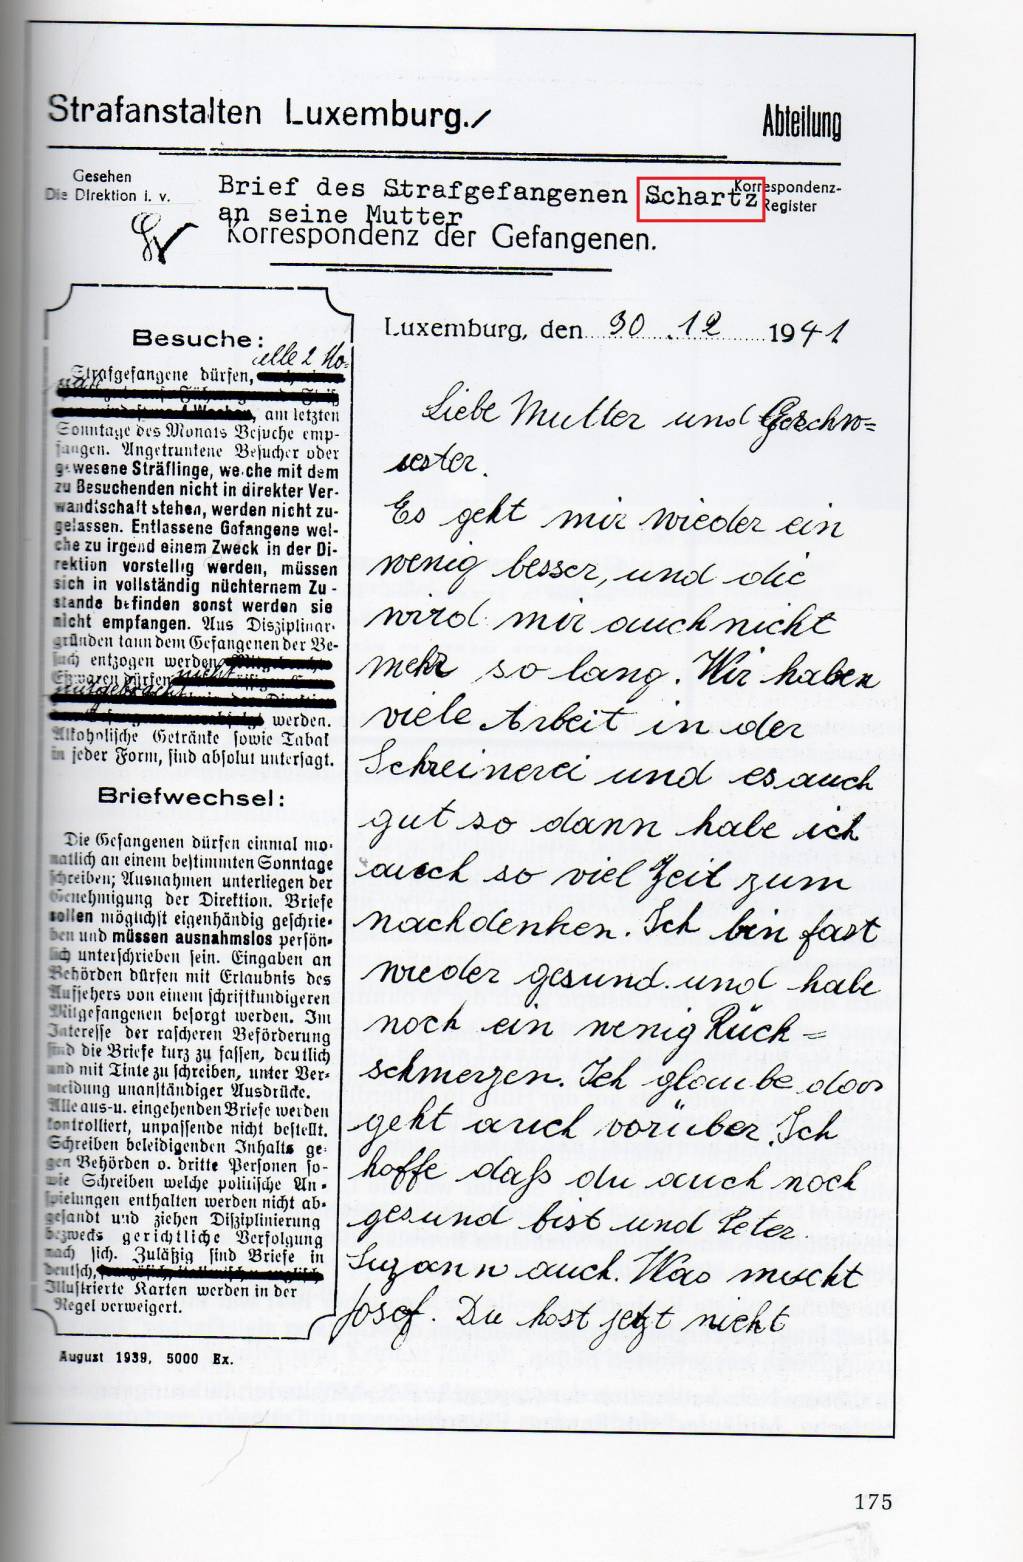 Strafanstalten Luxemburg./
Abteilung
Gesehen
Die Direktion i. v.
Brief des Strafgefangenen Schartz
an seine Mutter
Korrespondenz-
Register
Korrespondenz der Gefangenen.
Besuche:
alle 2 Mo-
Strafgefangene dürfen,
nate
, am letzten
Sonntage des Monats Besuche emp-
fangen. Angetrunkene Besucher oder
gewesene Sträflinge, welche mit dem
zu Besuchenden nicht in direkter Ver-
wandtschaft stehen, werden nicht zu-
gelassen. Entlassene Gefangene wel-
che zu irgend einem Zweck in der Di-
rektion vorstellig werden, müssen
sich in vollständig nüchternem Zu-
stande befinden sonst werden sie
nicht empfangen. Aus Disziplinar-
gründen kann dem Gefangenen der Be-
such entzogen werden
Eßwaren dürfen nicht
mitgebracht
werden.
Alkoholische Getränke sowie Tabak
in jeder Form, sind absolut untersagt.
Briefwechsel:
Die Gefangenen dürfen einmal mo-
natlich an einem bestimmten Sonntage
schreiben; Ausnahmen unterliegen der
Genehmigung der Direktion. Briefe
sollen möglichst eigenhändig geschrie-
ben und müssen ausnahmslos persön-
lich unterschrieben sein. Eingaben an
Behörden dürfen mit Erlaubnis des
Aufsehers von einem schriftkundigeren
Mitgefangenen besorgt werden. Im
Interesse der rascheren Beförderung
sind die Briefe kurz zu fassen, deutlich
und mit Tinte zu schreiben, unter Ver-
meidung unanständiger Ausdrücke.
Alle aus-u. eingehenden Briefe werden
kontrolliert, unpassende nicht bestellt.
Schreiben beleidigenden Inhalts ge-
gen Behörden o. dritte Personen so-
wie Schreiben welche politische An-
spielungen enthalten werden nicht ab-
gesandt und ziehen Disziplinierung
bezwecks gerichtliche Verfolgung
nach sich. Zuläßig sind Briefe in
deutsch,
Illustrierte Karten werden in der
Regel verweigert.
August 1939, 5000 Ex.
Luxemburg, den 30.12 1941
Liebe Mutter und Geschw=
ester.
Es geht mir wieder ein
wenig besser, und die
wird mir auch nicht
mehr so lang. Wir haben
viele Arbeit in der
Schreinerei und es auch
gut so dann habe ich
auch so viel Zeit zum
nachdenken. Ich bin fast
wieder gesund. und habe
noch ein wenig Rück=
schmerzen. Ich glaube das
geht auch vorüber. Ich
hoffe daß du auch noch
gesund bist und Peter
Suzann auch. Was macht
Josef. Du hast jetzt nicht
175